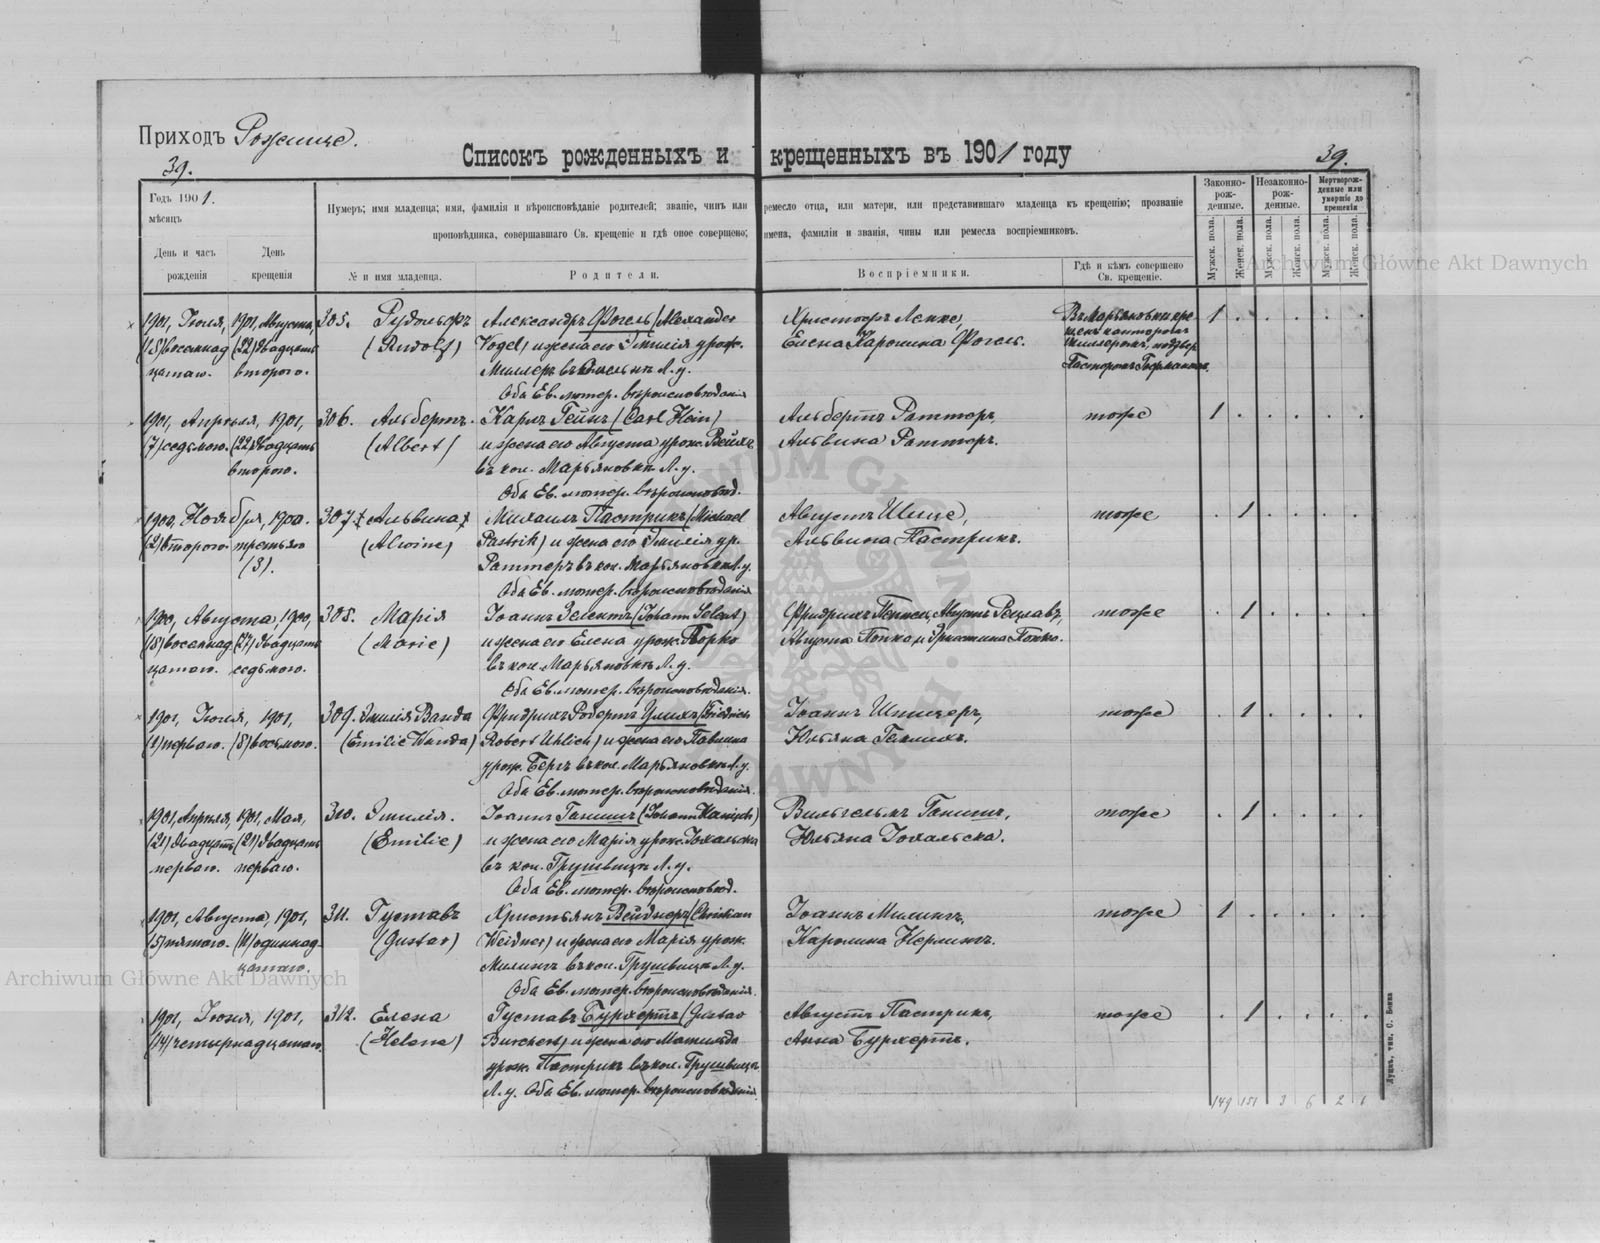 Приходъ Рожище.
39.
Списокъ рожденныхъ и крещенныхъ въ 1901 году
39.
Годъ 1901.
мѣсяцъ
День и часъ рожденія
День крещенія
Нумеръ; имя младенца; имя, фамилія и вѣроисповѣданіе родителей; званіе, чинъ или ремесло отца, или матери, или представившаго младенца къ крещенію; прозваніе
проповѣдника, совершавшаго Св. крещеніе и гдѣ оное совершено; имена, фамиліи и званія, чины или ремесла воспріемниковъ.
№ и имя младенца.
Родители.
Воспріемники.
Гдѣ и кѣмъ совершено Св. крещеніе.
Законно-рож-денные.
Незаконно-рож-денные.
Мертворож-денные или умершіе до крещенія
Мужск. пола.
Женск. пола.
Мужск. пола.
Женск. пола.
Мужск. пола.
Женск. пола.
1901, Іюля, 1901, Августа, 305. Рудольфъ Александръ Фогель (Alexander Христофъ Лепке, Въ Марьяновки кре- 1
(18) восемнад (22) двадцать (Rudolf) Vogel) и жена его Эмилія урож. Елена Каролина Фогель. щенъ канторомъ
цатаго. второго. Миллеръ въ Л. у. Миллеромъ, подтвер.
Оба Ев. лютер. вѣроисповѣданія Пасторомъ
1901, Апрѣля, 1901, 306. Альбертъ. Карлъ Гейнъ (Carl Hein) Альбертъ Раттеръ, тоже 1
(7) седьмого. (22) двадцать (Albert) и жена его Августа урож. Вейхъ Альвина Раттеръ.
второго. въ кол. Марьяновкѣ Л. у.
Оба Ев. лютер. вѣроисповѣд.
1900, Ноября, 1900. 307. Альвина Михаилъ Пастрикъ (Michael Августъ Шицъ, тоже 1
(2) второго. третьяго (Alwine) Pastrik) и жена его Эмилія ур. Альвина Пастрикъ.
(3). Раттеръ въ кол. Марьяновкѣ Л. у.
Оба Ев. лютер. вѣроисповѣданія
1900, Августа, 1900, 308. Марія Іоаннъ Зелентъ (Johann Selent) Фридрихъ Августъ тоже 1
(18) восемнад (27) двадцать (Marie) и жена его Елена урож. Августа Попко, и Эрнстина Попко.
цатаго. седьмого. въ кол. Марьяновкѣ Л. у.
Оба Ев. лютер. вѣроисповѣданія.
1901, Іюля, 1901, 309. Эмилія Ванда Фридрихъ Робертъ Улихъ (Friedrich Іоаннъ Шпицеръ, тоже 1
(1) перваго. (8) восьмого. (Emilie Wanda) Robert Uhlich) и жена его Павлина Юльяна
урож. Бергъ въ кол. Марьяновкѣ Л. у.
Оба Ев. лютер. вѣроисповѣданія.
1901, Апрѣля, 1901, Мая, 310. Эмилія. Іоаннъ Ганишъ (Johann Hanisch) Вильгельмъ Ганишъ, тоже 1
(21) двадцать (21) двадцать (Emilie) и жена его Марія урож. Юльяна
перваго. перваго. въ кол. Грушвицѣ Л. у.
Оба Ев. лютер. вѣроисповѣд.
1901, Августа, 1901, 311. Густавъ Христьянъ Вейднеръ (Christian Іоаннъ Милингъ, тоже 1
(5) пятого. (11) одиннад- (Gustav) Weidner) и жена его Марія урож. Каролина
цатаго. Милингъ въ кол. Грушвицѣ Л. у.
Оба Ев. лютер. вѣроисповѣданія.
1901, Іюня, 1901, 312. Елена Густавъ Бурхертъ (Gustav Августъ Пастрикъ, тоже 1
(14) четырнадцатаго. (Helene) Burchert) и жена его Матильда Анна Бурхертъ.
урож. Пастрикъ въ кол. Грушвицѣ
Л. у. Оба Ев. лютер. вѣроисповѣданія
149 151 3 6 2 1
Луцкъ, тип. С. Бенка
Archiwum Główne Akt Dawnych
Archiwum Główne Akt Dawnych